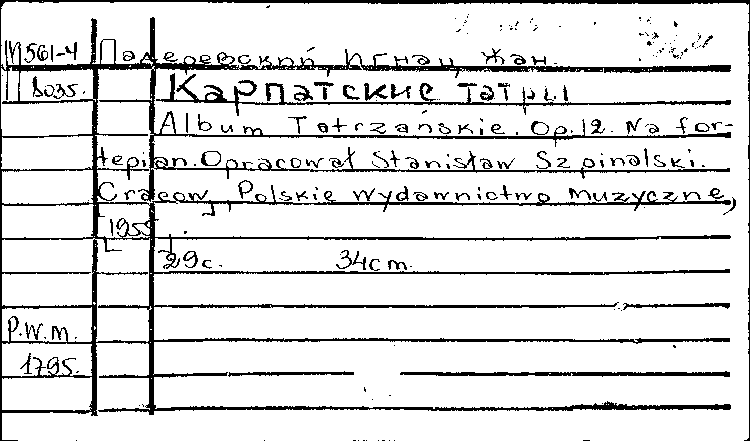 М561-4 Падеревский, Игнац Жан.
8035. Карпатские татры
Album Tatrzańskie. Op.12. Na for-
tepian. Opracował Stanisław Szpinalski.
Cracow, Polskie wydawnictwo muzyczne,
[1955].
29с. 34cm.
P.W.M.
1795.